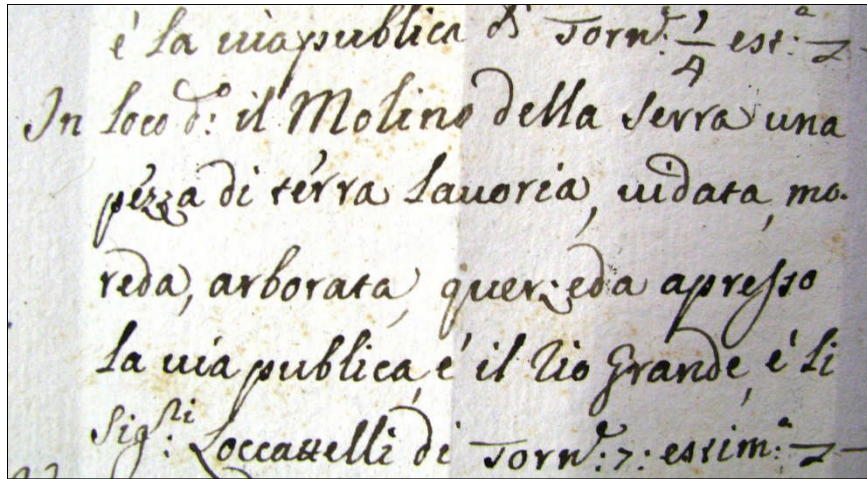 é la via publica di Torn.e 1/4 est.a 2
In loco d.o il Molino della Serra una
pézza di térra lavoria, vidata, mo-
reda, arborata, querzeda apresso
la via publica, é il Rio Grande, é li
Sig.ri Loccatelli di Torn.e: 7: estim.a